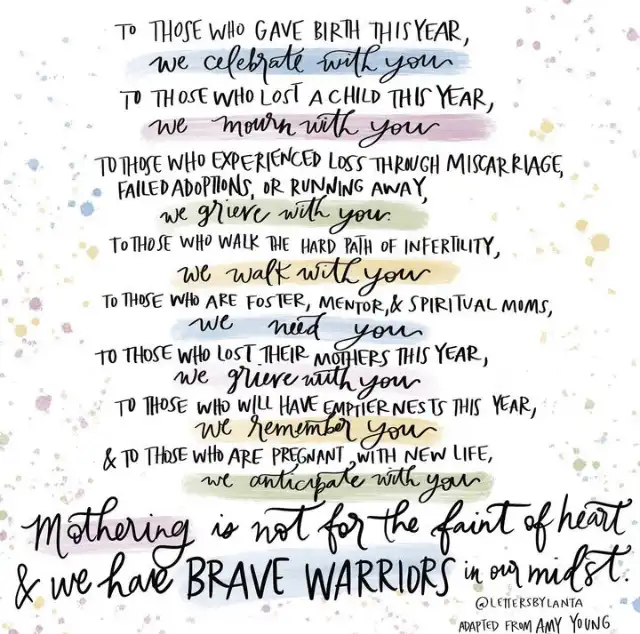 TO THOSE WHO GAVE BIRTH THIS YEAR,
we celebrate with you
TO THOSE WHO LOST A CHILD THIS YEAR,
we mourn with you
TO THOSE WHO EXPERIENCED LOSS THROUGH MISCARRIAGE,
FAILED ADOPTIONS, OR RUNNING AWAY,
we grieve with you.
TO THOSE WHO WALK THE HARD PATH OF INFERTILITY,
we walk with you
TO THOSE WHO ARE FOSTER, MENTOR, & SPIRITUAL MOMS,
we need you
TO THOSE WHO LOST THEIR MOTHERS THIS YEAR,
we grieve with you
TO THOSE WHO WILL HAVE EMPTIER NESTS THIS YEAR,
we remember you
& TO THOSE WHO ARE PREGNANT WITH NEW LIFE,
we anticipate with you
Mothering is not for the faint of heart
& we have BRAVE WARRIORS in our midst.
@LETTERSBYLANTA
ADAPTED FROM AMY YOUNG